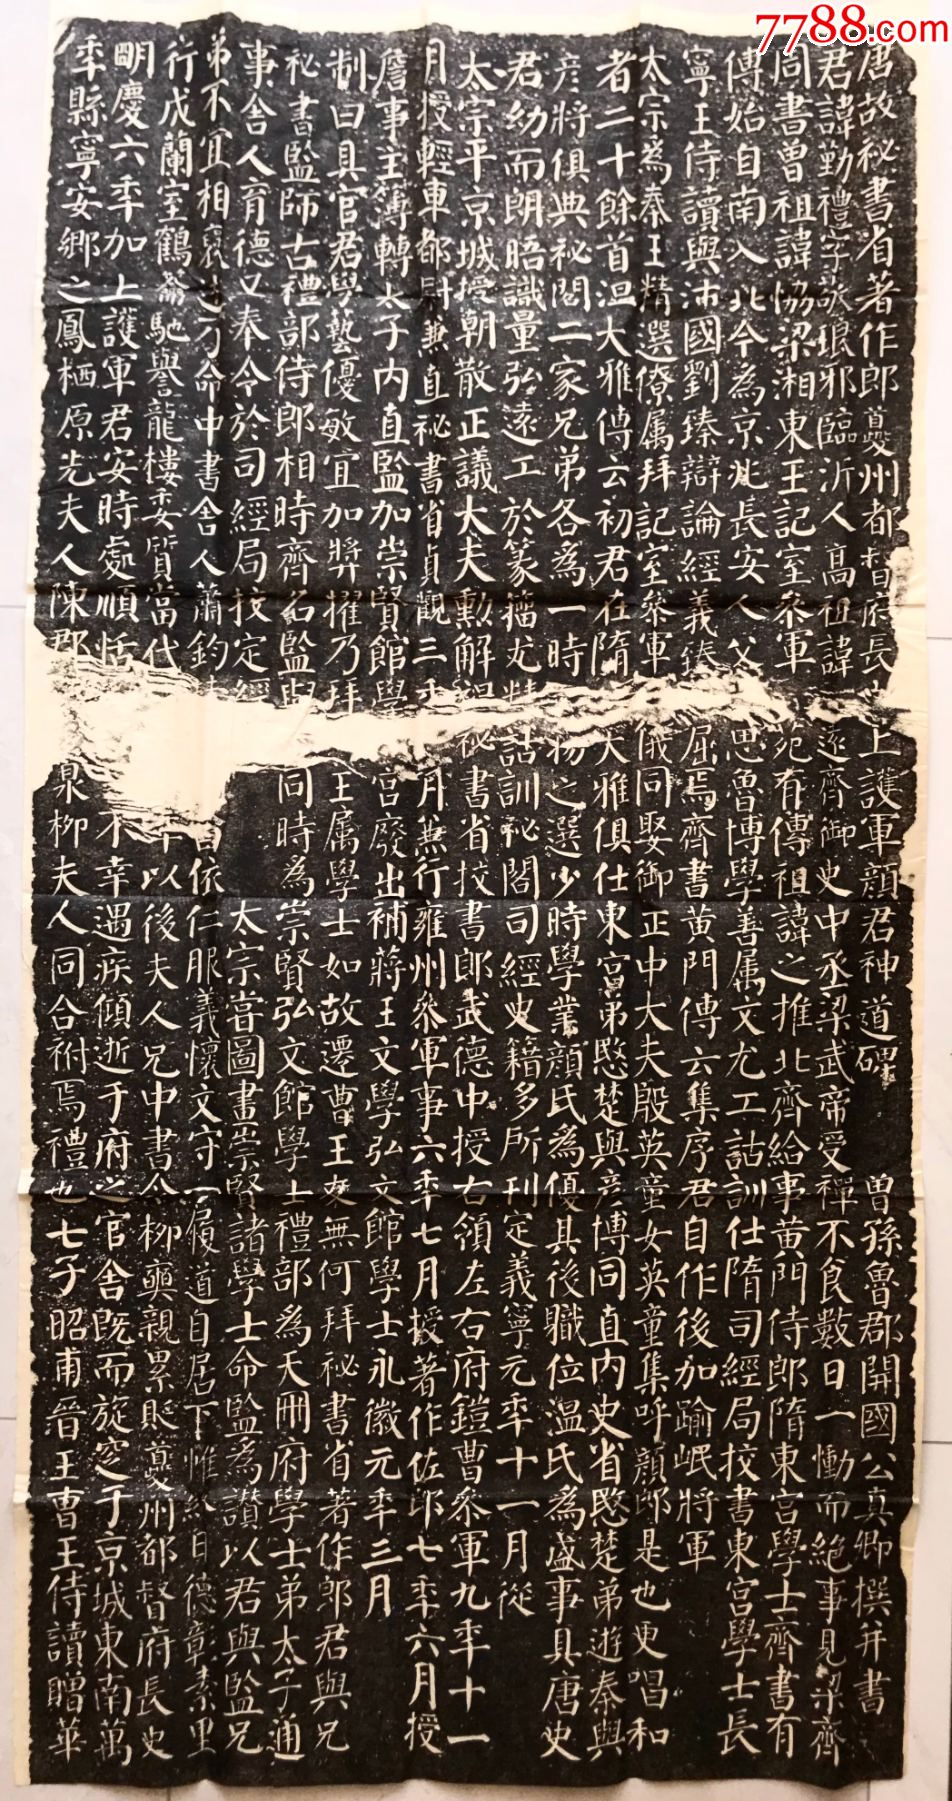 7788.com
唐故秘書省著作郎夔州都督府長上護軍顏君神道碑 曾孫魯郡開國公真卿撰并書
君諱勤禮字敬琅邪臨沂人高祖諱遠齊御史中丞梁武帝受禪不食數日一慟而絕事見梁齊
周書曾祖諱協梁湘東王記室參軍苑有傳祖諱之推北齊給事黃門侍郎隋東宮學士齊書有
傳始自南入北今為京兆長安人父思魯博學善属文尤工詁訓仕隋司經局挍書東宮學士長
寧王侍讀與沛國劉臻辯論經義臻屈焉齊書黃門傳云集序君自作後加踰岷將軍
太宗為秦王精選僚属拜記室參軍儀同娶御正中大夫殷英童女英童集呼顏郎是也更唱和
者二十餘首温大雅傳云初君在隋大雅俱仕東宮弟愍楚與彦博同直内史省愍楚弟遊秦與
彦將俱典秘閣二家兄弟各為一時物之選少時學業顏氏為優其後職位温氏為盛事具唐史
君幼而朗晤識量弘遠工於篆籀尤精詁訓秘閣司經史籍多所刊定義寧元年十一月從
太宗平京城授朝散正議大夫勳解褐秘書省挍書郎武德中授右領左右府鎧曹參軍九年十一
月授輕車都尉兼直秘書省貞觀三年月兼行雍州參軍事六年七月授著作佐郎七年六月授
詹事主簿轉太子内直監加崇賢館學宮廢出補蔣王文學弘文館學士永徽元年三月
制曰具官君學藝優敏宜加奬擢乃拜王属學士如故遷曹王友無何拜秘書省著作郎君與兄
秘書監師古禮部侍郎相時齊名監與同時為崇賢弘文館學士禮部為天冊府學士弟太子通
事舍人育德又奉令於司經局挍定經太宗嘗圖畫崇賢諸學士命監為讃以君與監兄
弟不宜相褒述乃命中書舍人蕭鈞依仁服義懷文守一履道自居下帷終日德彰素里
行成蘭室鶴籥馳譽龍樓委質當代以後夫人兄中書令柳奭親累貶夔州都督府長史
明慶六年加上護軍君安時處順恬不幸遇疾傾逝于府之官舍既而旋窆于京城東南萬
年縣寧安鄉之鳳栖原先夫人陳郡泉柳夫人同合祔焉禮也七子昭甫晉王曹王侍讀贈華